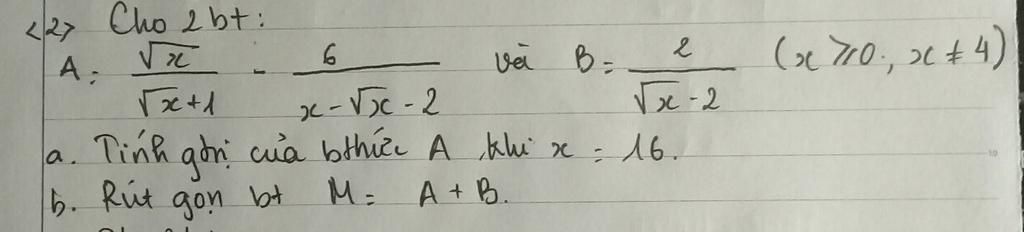 <2> Cho 2 bt:
A = √x / (√x + 1) - 6 / (x - √x - 2) và B = 2 / (√x - 2) (x ≥ 0 ; x ≠ 4)
a. Tính gtrị của bthức A khi x = 16.
b. Rút gọn bt M = A + B.